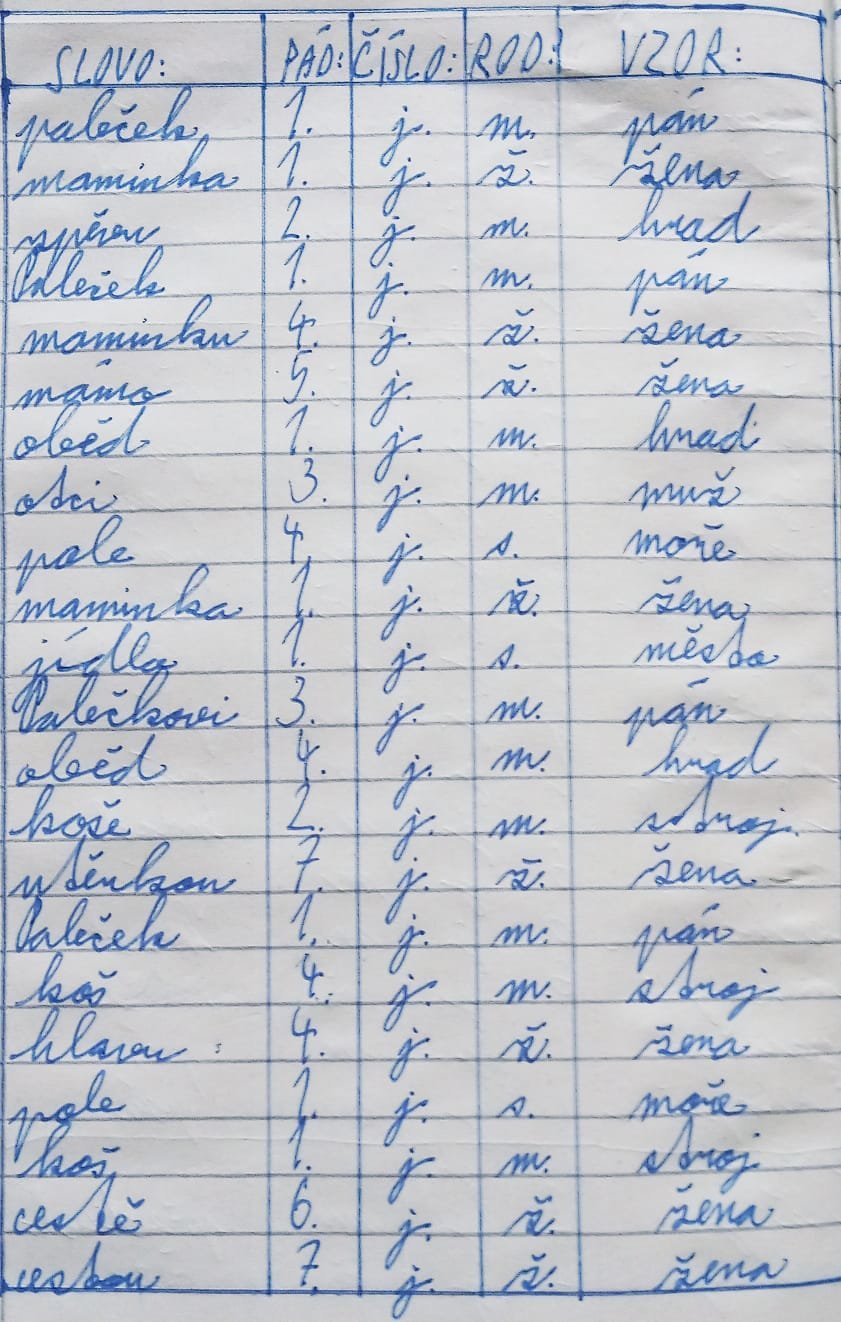 SLOVO: PÁD: ČÍSLO: ROD: VZOR:
paleček 1. j. m. pán
maminka 1. j. ž. žena
zpěvu 2. j. m. hrad
Paleček 1. j. m. pán
maminku 4. j. ž. žena
mámo 5. j. ž. žena
oběd 1. j. m. hrad
otci 3. j. m. muž
pole 4. j. s. moře
maminka 1. j. ž. žena
jídla 1. j. s. město
Palečkovi 3. j. m. pán
oběd 4. j. m. hrad
koše 2. j. m. stroj
utěrkou 7. j. ž. žena
Paleček 1. j. m. pán
koš 4. j. m. stroj
hlavu 4. j. ž. žena
pole 1. j. s. moře
koš 1. j. m. stroj
cestě 6. j. ž. žena
cestou 7. j. ž. žena